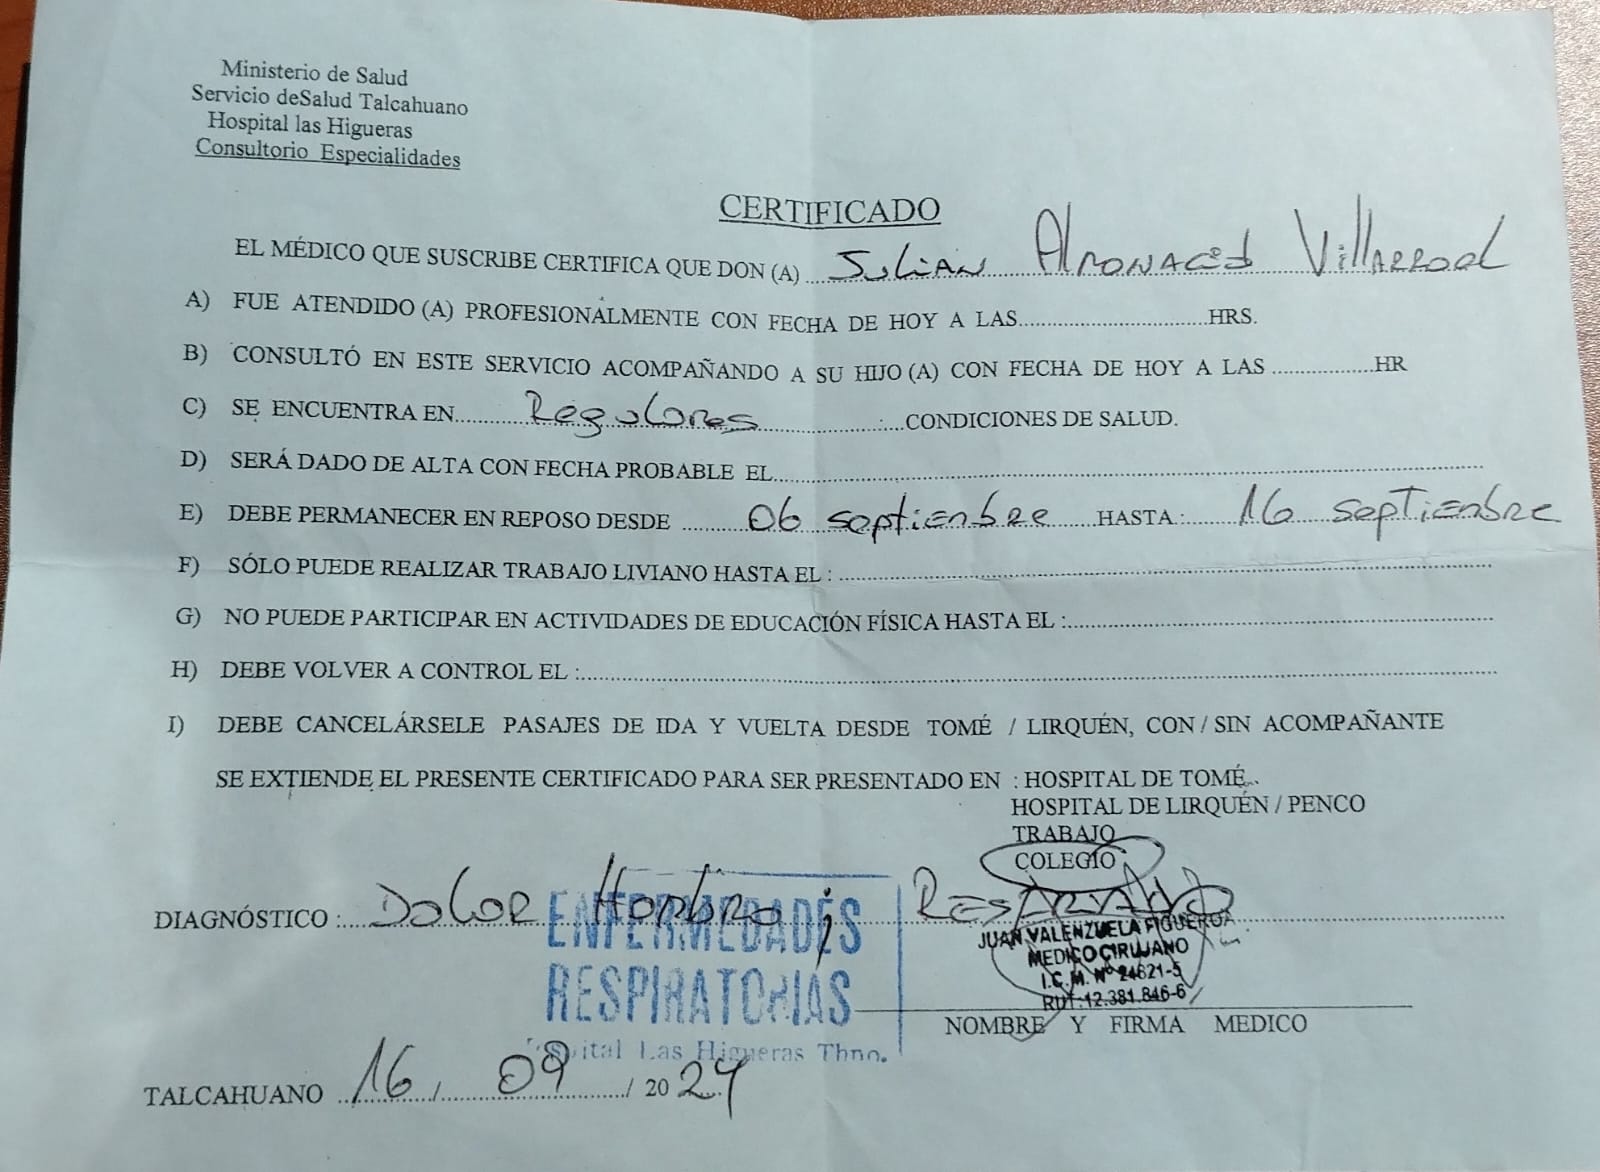 Ministerio de Salud
Servicio deSalud Talcahuano
Hospital las Higueras
Consultorio Especialidades
CERTIFICADO
EL MÉDICO QUE SUSCRIBE CERTIFICA QUE DON (A) Julian Almonacid Villarroel
A) FUE ATENDIDO (A) PROFESIONALMENTE CON FECHA DE HOY A LAS..............................HRS.
B) CONSULTÓ EN ESTE SERVICIO ACOMPAÑANDO A SU HIJO (A) CON FECHA DE HOY A LAS ..................HR
C) SE ENCUENTRA EN...... Regulares ......CONDICIONES DE SALUD.
D) SERÁ DADO DE ALTA CON FECHA PROBABLE EL..............................
E) DEBE PERMANECER EN REPOSO DESDE ...... 06 septiembre ......HASTA :...... 16 septiembre
F) SÓLO PUEDE REALIZAR TRABAJO LIVIANO HASTA EL : ..............................
G) NO PUEDE PARTICIPAR EN ACTIVIDADES DE EDUCACIÓN FÍSICA HASTA EL :..............................
H) DEBE VOLVER A CONTROL EL :..............................
I) DEBE CANCELÁRSELE PASAJES DE IDA Y VUELTA DESDE TOMÉ / LIRQUÉN, CON / SIN ACOMPAÑANTE
SE EXTIENDE EL PRESENTE CERTIFICADO PARA SER PRESENTADO EN : HOSPITAL DE TOMÉ
HOSPITAL DE LIRQUÉN / PENCO
TRABAJO
COLEGIO
DIAGNÓSTICO :...... Dolor Hombro,
ENFERMEDADES
RESPIRATORIAS
Hospital Las Higueras Thno.
JUAN VALENZUELA FIGUEROA
MEDICO CIRUJANO
I.C.M. Nº 24621-5
RUT:12.381.846-6
NOMBRE Y FIRMA MEDICO
TALCAHUANO 16 / 09 / 2024